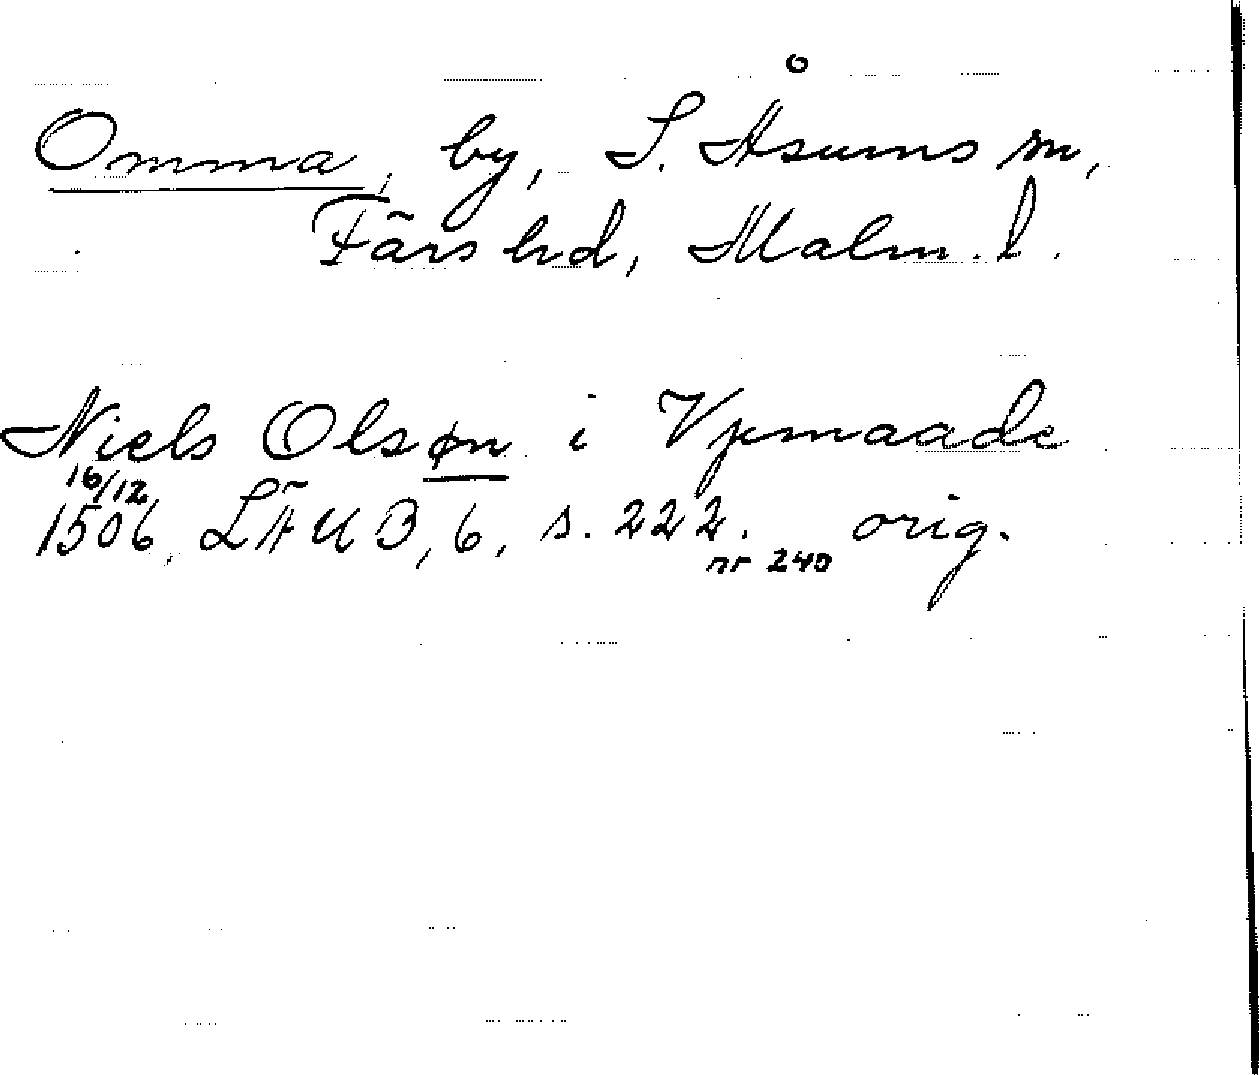 Omma, by, S. Åsums sn,
Färs hd, Malm. l.
Niels Olsøn i Vpmaade
16/12
1506, LÄUB, 6, s. 222. orig.
nr 240